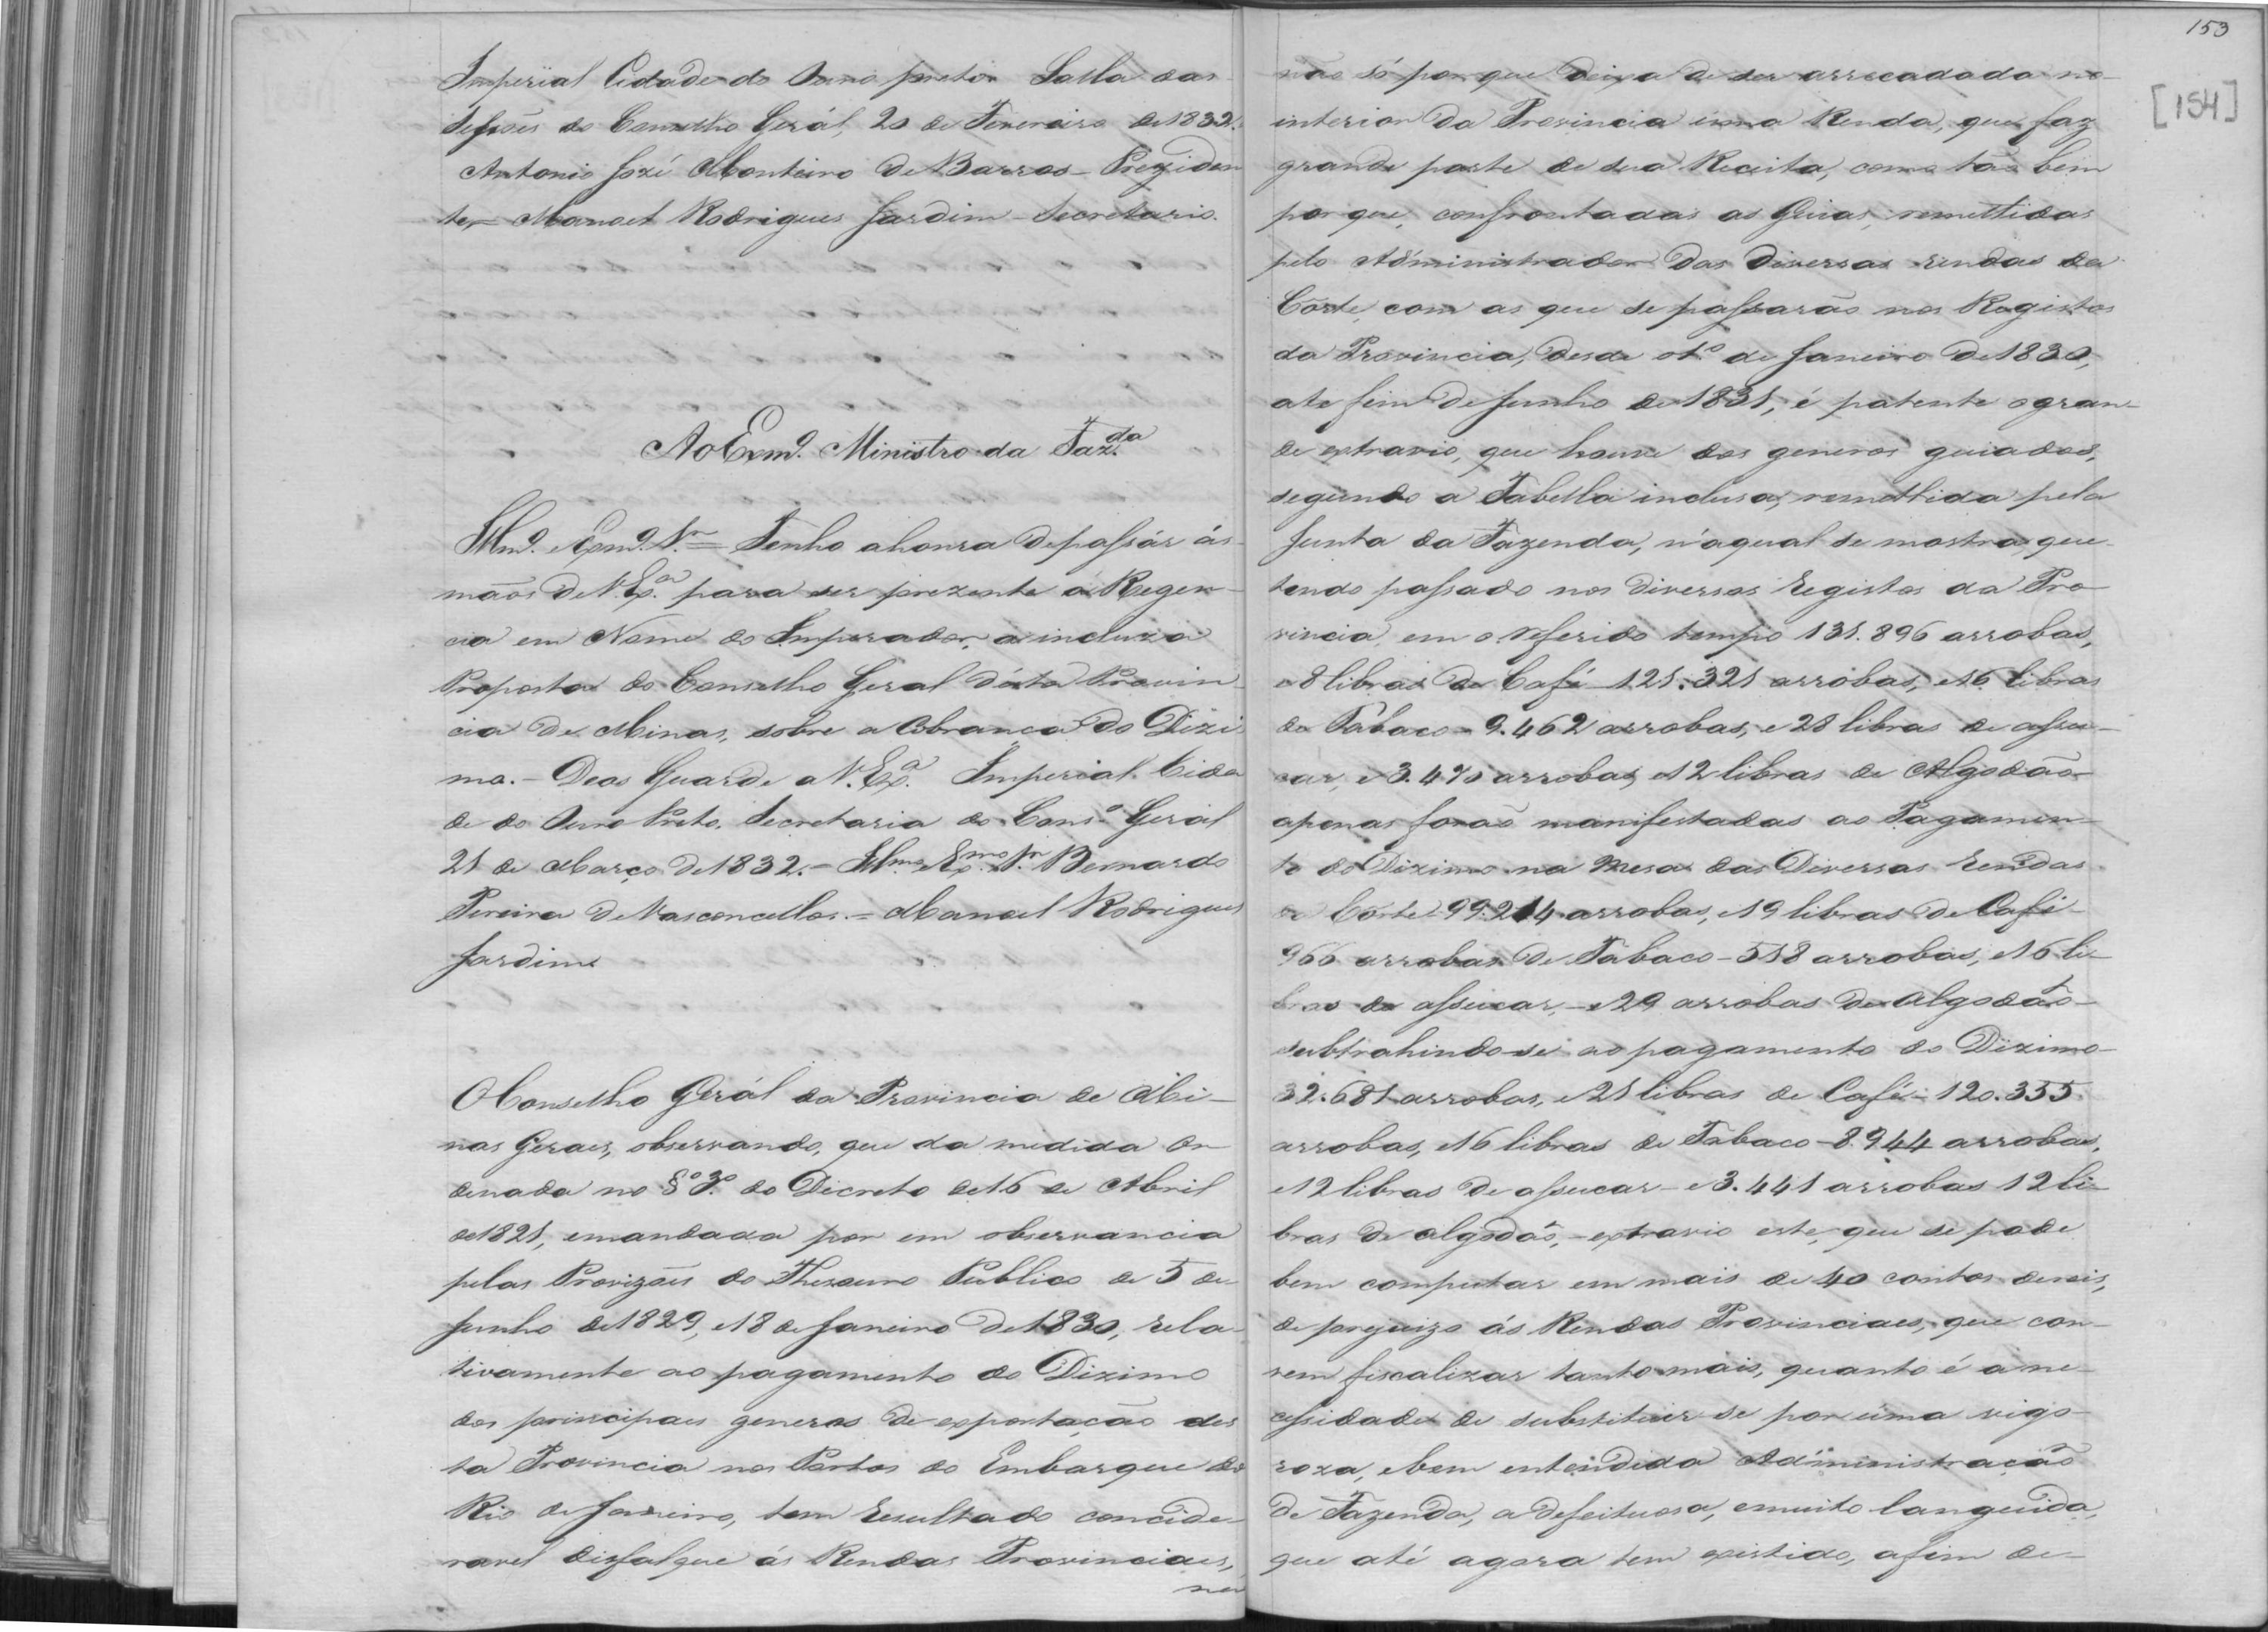 Imperial Cidade do Ouro preto Salla das
Sessoẽs do Conselho Gerál, 20 de Fevereiro de 1832.
Antonio José Monteiro de Barros - Preziden
te, = Manoel Rodrigues Jardim - Secretario.
Ao Exmº. Ministro da Fazda.
Illmº. e Exmº. Sr. = Tenho a honra de passár ás
maõs de V. Exa. para ser prezente á Regen-
cia em Nome do Imperador, a incluza
Proposta do Conselho Geral désta Provin
cia de Minas, sobre a Cobrança do Dizi
mo. - Deos Guarde a V. Exa. Imperial Cida
de do Ouro Preto. Secretaria do Conso. Geral
21 de Março de 1832. - Illmo. e Exmo. Sr. Bernardo
Pereira de Vasconcellos. = Manoel Rodrigues
Jardim
O Conselho Gerál da Provincia de Mi-
nas Geraes, observando, que da medida or
denada no §º 3º. do Decreto de 16 de Abril
de 1821, e mandada por em observancia
pelas Provizoẽs do Thesouro Publico de 5 de
Junho de 1829, e 18 de Janeiro de 1830, rela
tivamente ao pagamento do Dizimo
dos principaes generos de exportação des
ta Provincia nos Portos do Embarque do
Rio de Janeiro, tem resultado concide
ravel disfalque ás Rendas Provinciaes,
não
153
[154]
não só por que deixa de ser arrecadada no
interior da Provincia uma Renda, que faz
grande parte de sua Receita, como tão bem
por que, confrontadas as Guias, remettidas
pelo Administrador das diversas rendas da
Côrte, com as que se passarão nos Registos
da Provincia, desde o 1.º de Janeiro de 1830,
ate fim de Junho de 1831, é patente o gran-
de extravio, que houve dos generos guiados,
segundo a Tabella inclusa, remettida pela
Junta da Fazenda, n'aqual se mostra, que
tendo passado nos diversos Registos da Pro
vincia, em o referido tempo 131.896 arrobas,
e 8 libras de Café - 121.321 arrobas, e 16 libras
de Tabaco - 9.462 arrobas, e 28 libras de assu-
car, e 3.470 arrobas, e 12 libras de Algodão
apenas forão manifestadas ao Pagamen-
to do Dizimo na Mesa das Diversas Rendas
da Côrte 99.214 arrobas, e 19 libras de Café -
966 arrobas de Tabaco - 518 arrobas, e 16 li-
bras de assucar, - e 29 arrobas de Algodão -
subtrahindo-se ao pagamento do Dizimo -
32.681 arrobas, e 21 libras de Café - 120.355
arrobas, e 16 libras de Tabaco - 8.944 arrobas,
e 12 libras de assucar - e 3.441 arrobas 12 li-
bras de algodão, - extravio este, que se pode
bem computar em mais de 40 contos de reis,
de prejuizo ás Rendas Provinciaes, que con-
vem fiscalizar tanto mais, quanto é a ne-
cessidade de substituir-se por uma vigo-
roza, e bem entendida Administração
de Fazenda, a defeituosa, e muito languida,
que até agora tem existido, afim de